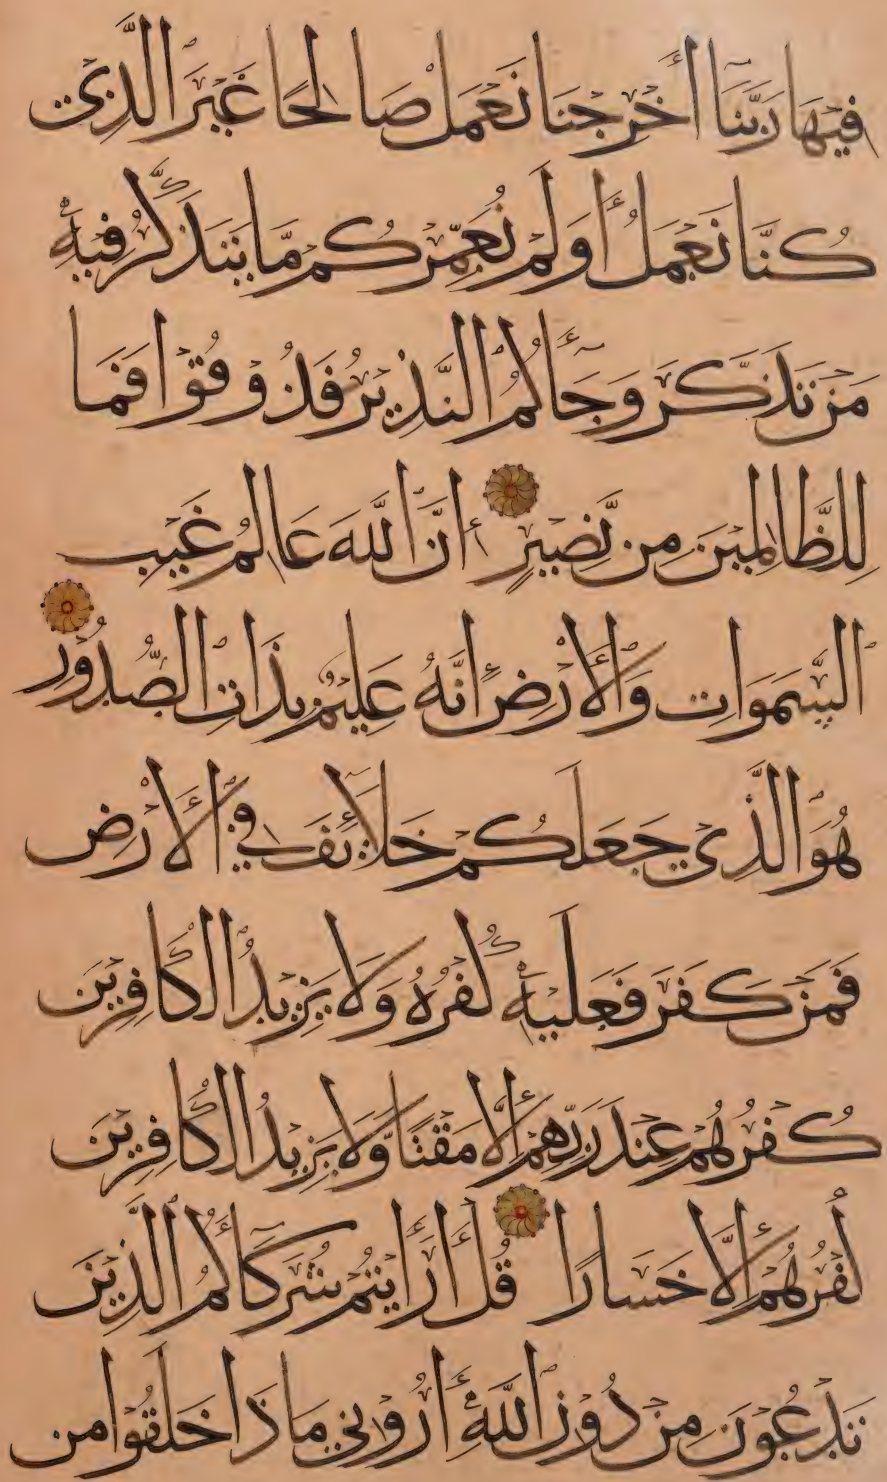 فِيهَا رَبَّنَا أَخْرِجْنَا نَعْمَلْ صَالِحًا غَيْرَ الَّذِي
كُنَّا نَعْمَلُ أَوَلَمْ نُعَمِّرْكُم مَّا يَتَذَكَّرُ فِيهِ
مَن تَذَكَّرَ وَجَآكُمُ النَّذِيرُ فَذُوقُوا فَمَا
لِلظَّالِمِينَ مِن نَّصِيرٍ إِنَّ اللَّهَ عَالِمُ غَيْبِ
السَّمَوَاتِ وَالْأَرْضِ إِنَّهُ عَلِيمٌ بِذَاتِ الصُّدُورِ
هُوَ الَّذِي جَعَلَكُمْ خَلَائِفَ فِي الْأَرْضِ
فَمَن كَفَرَ فَعَلَيْهِ كُفْرُهُ وَلَا يَزِيدُ الْكَافِرِينَ
كُفْرُهُمْ عِندَ رَبِّهِمْ إِلَّا مَقْتًا وَلَا يَزِيدُ الْكَافِرِينَ
كُفْرُهُمْ إِلَّا خَسَارًا قُلْ أَرَأَيْتُمْ شُرَكَآكُمُ الَّذِينَ
تَدْعُونَ مِن دُونِ اللَّهِ أَرُونِي مَاذَا خَلَقُوا مِنَ